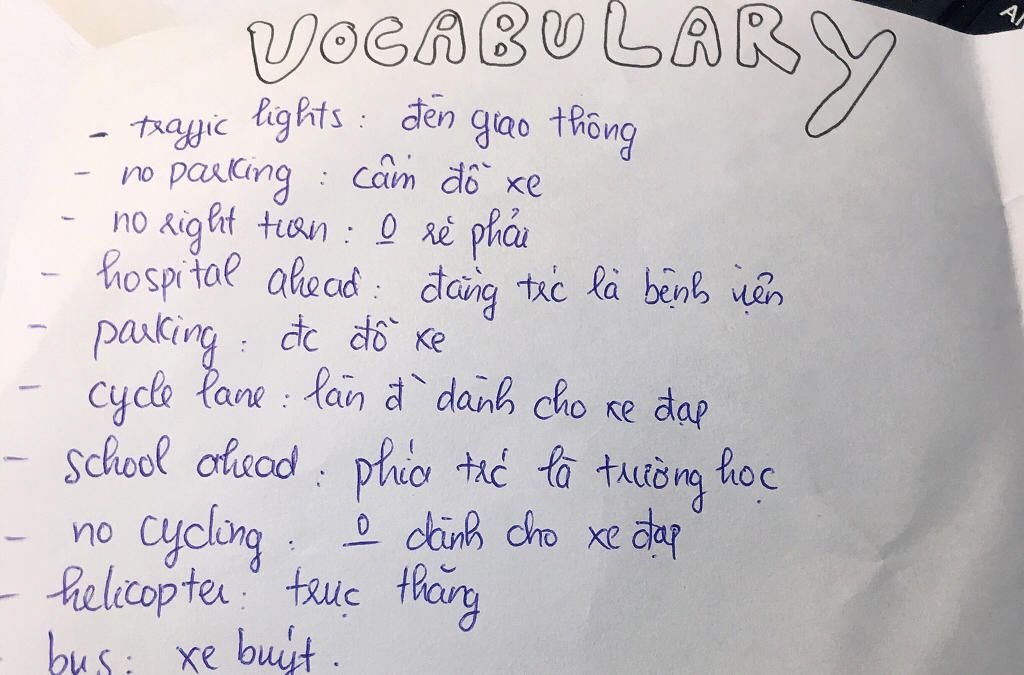 VOCABULARY
- traffic lights : đèn giao thông
- no parking : cấm đỗ xe
- no right turn : 0 rẽ phải
- hospital ahead : đằng trc là bệnh viện
- parking : đc đỗ xe
- cycle lane : làn đ` dành cho xe đạp
- school ahead : phía trc là trường học
- no cycling : 0 dành cho xe đạp
- helicopter : trực thăng
- bus : xe buýt .